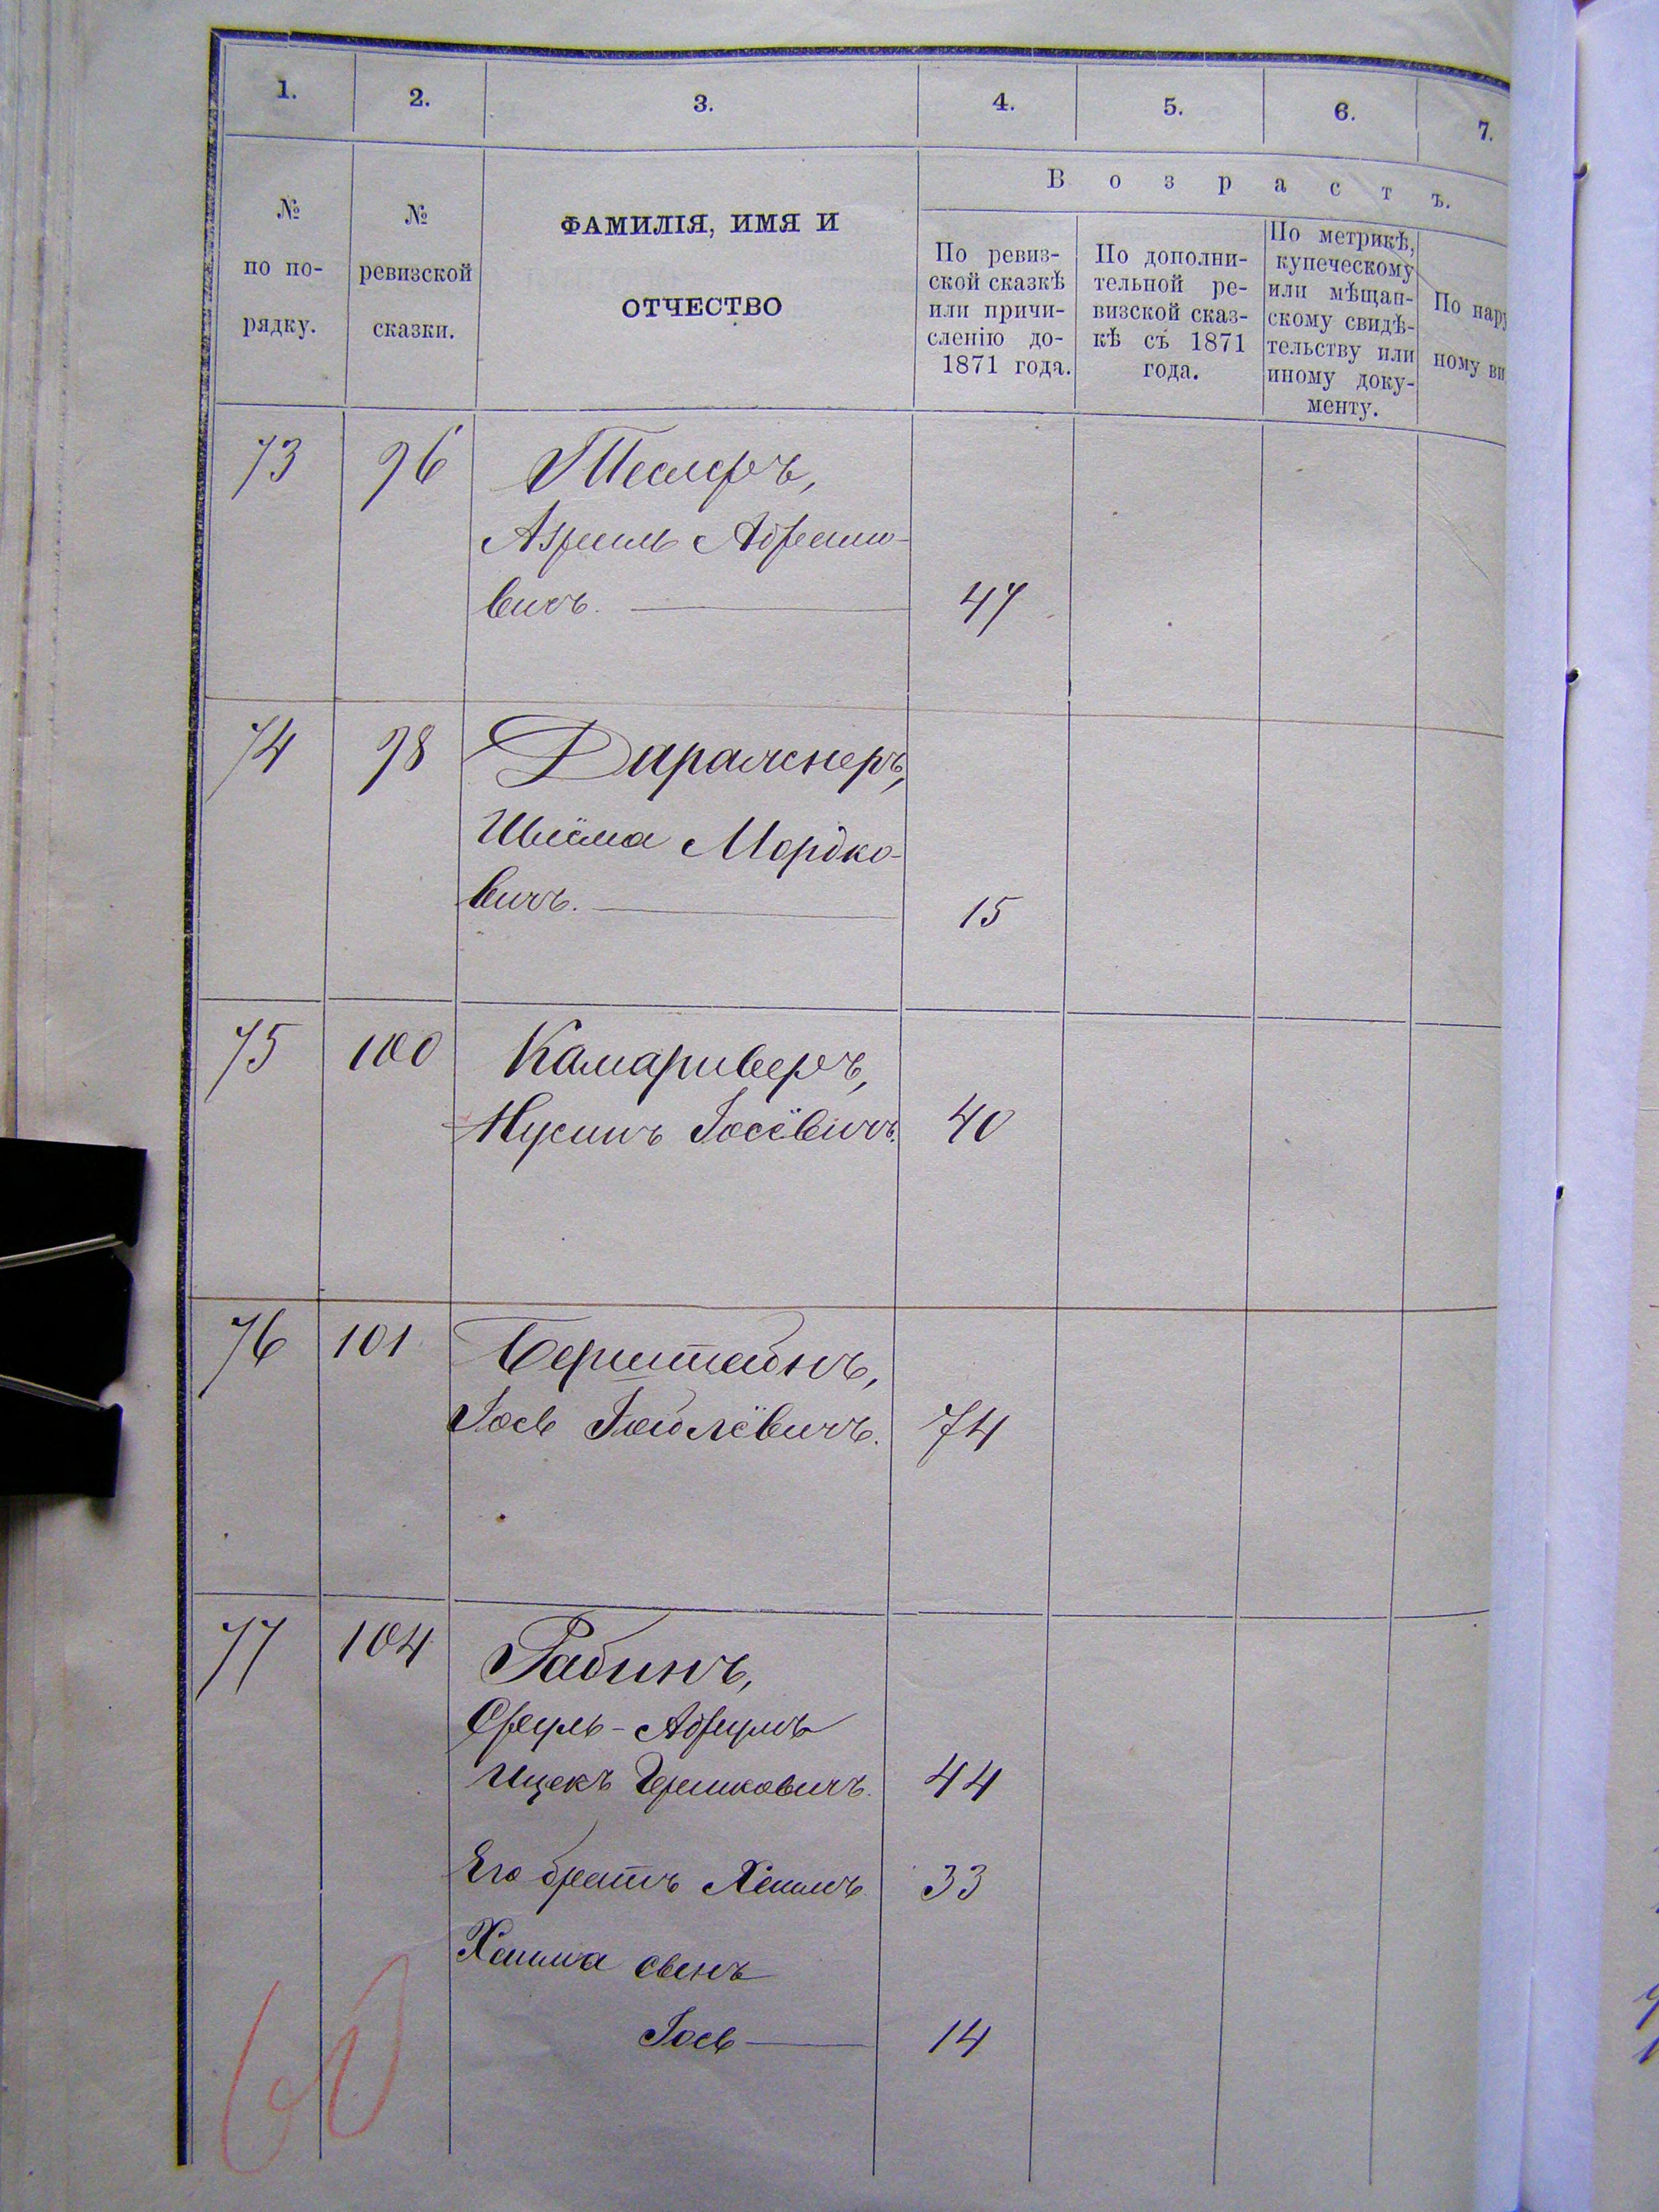 1. 2. 3. 4. 5. 6. 7.
№ по по-рядку.
№ ревизской сказки.
ФАМИЛІЯ, ИМЯ И
ОТЧЕСТВО
Возрастъ.
По ревиз-
ской сказкѣ
или причи-
сленію до-
1871 года.
По дополни-
тельной ре-
визской сказ-
кѣ съ 1871
года.
По метрикѣ,
купеческому
или мѣщан-
скому свидѣ-
тельству или
иному доку-
менту.
По нару
ному ви
73 96 Теслеръ,
Азриль Абрамо-
вичъ. 47
74 98
Шлёма Мордко-
вичъ. 15
75 100 Камариверъ,
Нусинъ Іосёвичъ. 40
76 101 Бернштейнъ,
Іось 74
77 104 Рабинъ,
Сруль-Абрумъ
Ицекъ Гершковичъ. 44
Его братъ Хаимъ 33
Хаима сынъ
Іось 14
60